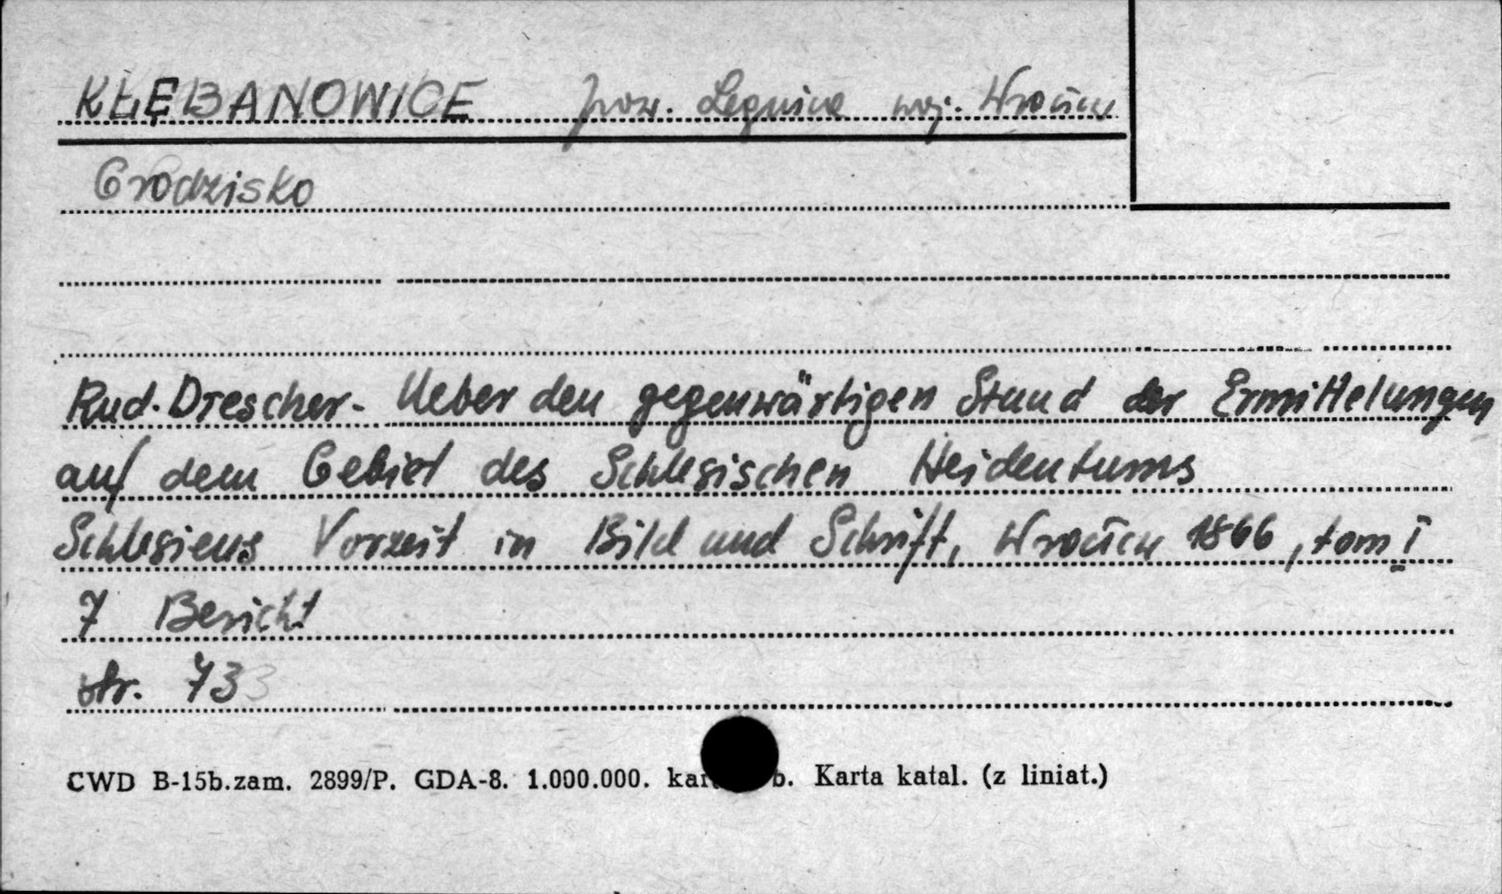 KŁĘBANOWICE pow. Legnica woj. Wrocław
Grodzisko
Rud. Drescher - Ueber den gegenwärtigen Stand der Ermittelungen
auf dem Gebiet des Schlesischen Heidentums
Schlesiens Vorzeit in Bild und Schrift, Wrocław 1866, tom I
7 Bericht
str. 73
CWD B-15b.zam. 2899/P. GDA-8. 1.000.000. b. Karta katal. (z liniat.)